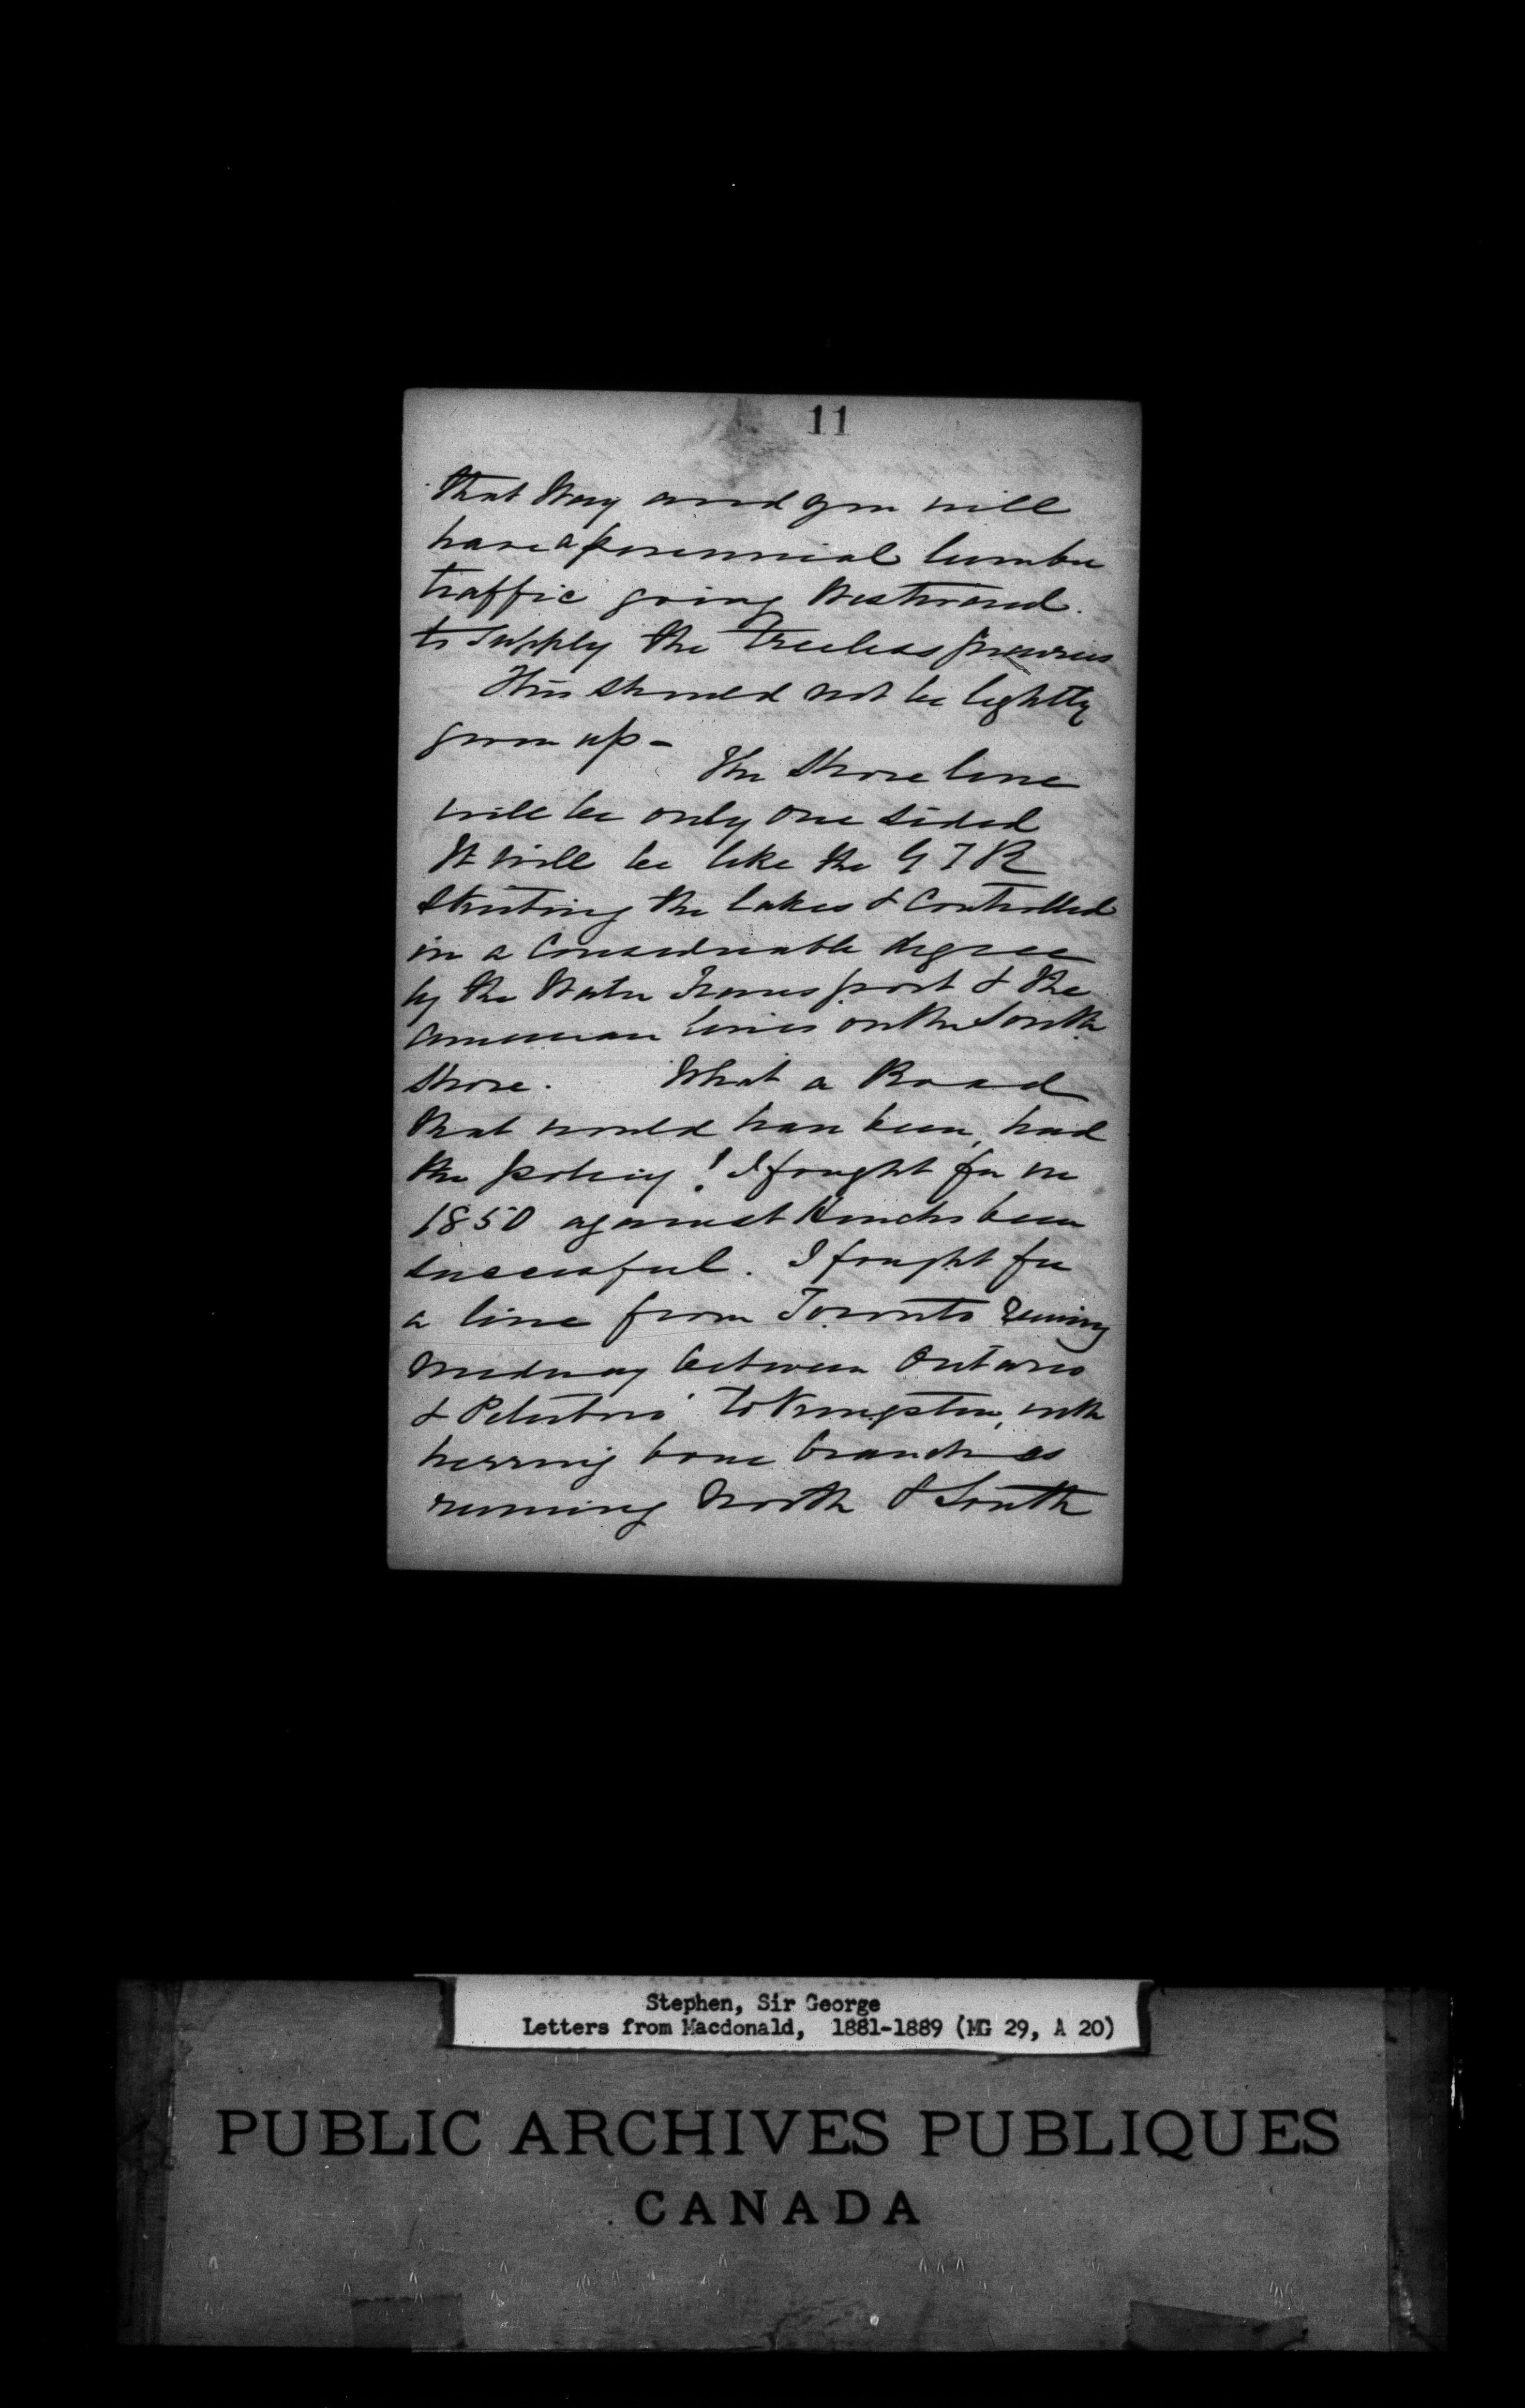 11
that way and you will
have a perennial lumber
traffic going Westward.
to supply the treeless prairies
This should not be lightly
given up -
The Shore line
will be only one sided
It will be like the G T R
Skirting the lakes & Controlled
in a Considerable degree
by the Water Transport & the
American lines on the South
Shore. What a Road
that would have been, had
the policy ! I fought for in
1850 against Hincks been
successful. I fought for
a line from Toronto
midway between Ontario
& Peterboro' to Kingston, with
herring bone branches
running North & South
Stephen, Sir George
Letters from Macdonald, 1881-1889 (MG 29, A 20)
PUBLIC ARCHIVES PUBLIQUES
CANADA